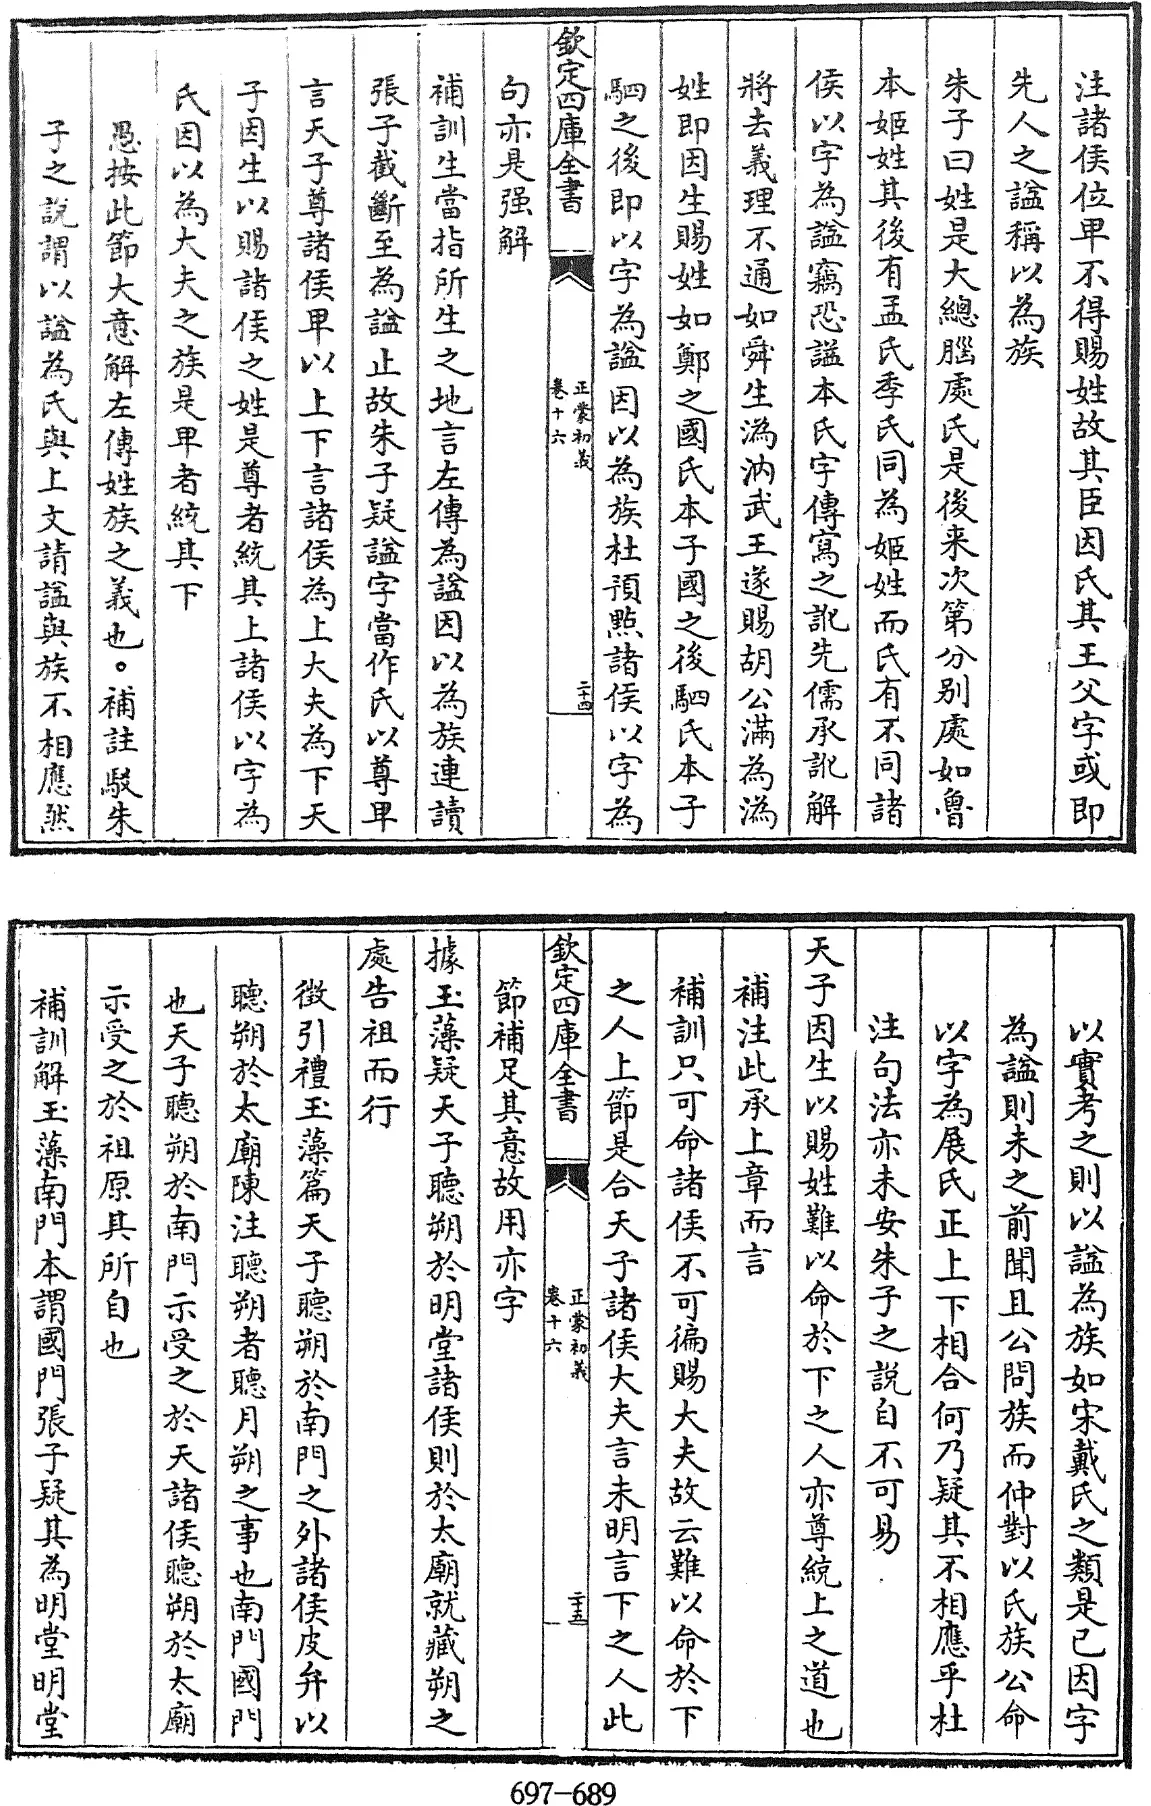 注諸侯位卑不得賜姓故其臣因氏其王父字或即
先人之諡稱以為族
朱子曰姓是大總腦處氏是後来次第分别處如魯
本姬姓其後有孟氏季氏同為姬姓而氏有不同諸
侯以字為諡竊恐諡本氏字傳寫之訛先儒承訛解
將去義理不通如舜生溈汭武王遂賜胡公滿為溈
姓即因生賜姓如鄭之國氏本子國之後駟氏本子
駟之後即以字為諡因以為族杜預㸃諸侯以字為
欽定四庫全書
正蒙初義
卷十六
二十四
句亦是强解
補訓生當指所生之地言左傳為諡因以為族連讀
張子截斷至為諡止故朱子疑諡字當作氏以尊卑
言天子尊諸侯卑以上下言諸侯為上大夫為下天
子因生以賜諸侯之姓是尊者統其上諸侯以字為
氏因以為大夫之族是卑者統其下
愚按此節大意解左傳姓族之義也。補註駁朱
子之說謂以諡為氏與上文請諡與族不相應然
以實考之則以諡為族如宋戴氏之類是已因字
為諡則未之前聞且公問族而仲對以氏族公命
以字為展氏正上下相合何乃疑其不相應乎杜
注句法亦未安朱子之説自不可易
天子因生以賜姓難以命於下之人亦尊統上之道也
補注此承上章而言
補訓只可命諸侯不可徧賜大夫故云難以命於下
之人上節是合天子諸侯大夫言未明言下之人此
欽定四庫全書
正蒙初義
卷十六
二十五
節補足其意故用亦字
據玉藻疑天子聽朔於明堂諸侯則於太廟就藏朔之
處告祖而行
徵引禮玉藻篇天子聽朔於南門之外諸侯皮弁以
聽朔於太廟陳注聽朔者聽月朔之事也南門國門
也天子聽朔於南門示受之於天諸侯聽朔於太廟
示受之於祖原其所自也
補訓解玉藻南門本謂國門張子疑其為明堂明堂
697-689